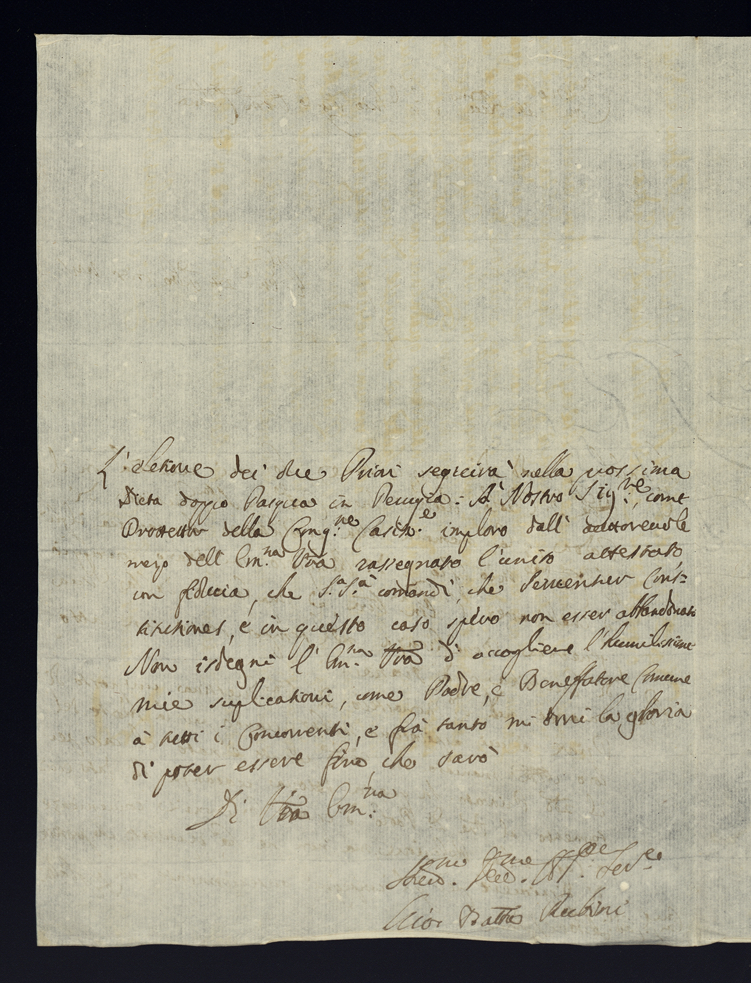 L'eletione dei due Priori seguirà nella prossima
Dieta doppo Pasqua in Perugia: A' Nostro Sig.re, come
Protettor della Cong.ne Casin.e imploro dall' autorevole
mezo dell' Em.na Vrã rassegnato l'unito attestato,
con fiducia, che S.a S.a comandi, che serventur Cons=
titutiones, è in questo caso spero non esser abbandonato
Non isdegni l' Em.na Vrã d' accogliere l'humilissime
mie suplicationi, come Padre, è Benefattore Comune
à tutti i Concorrenti, e frà tanto mi dia la gloria
di poter essere fino, che sarò
Di Vrã Em.na
Gio: Batta Rubini